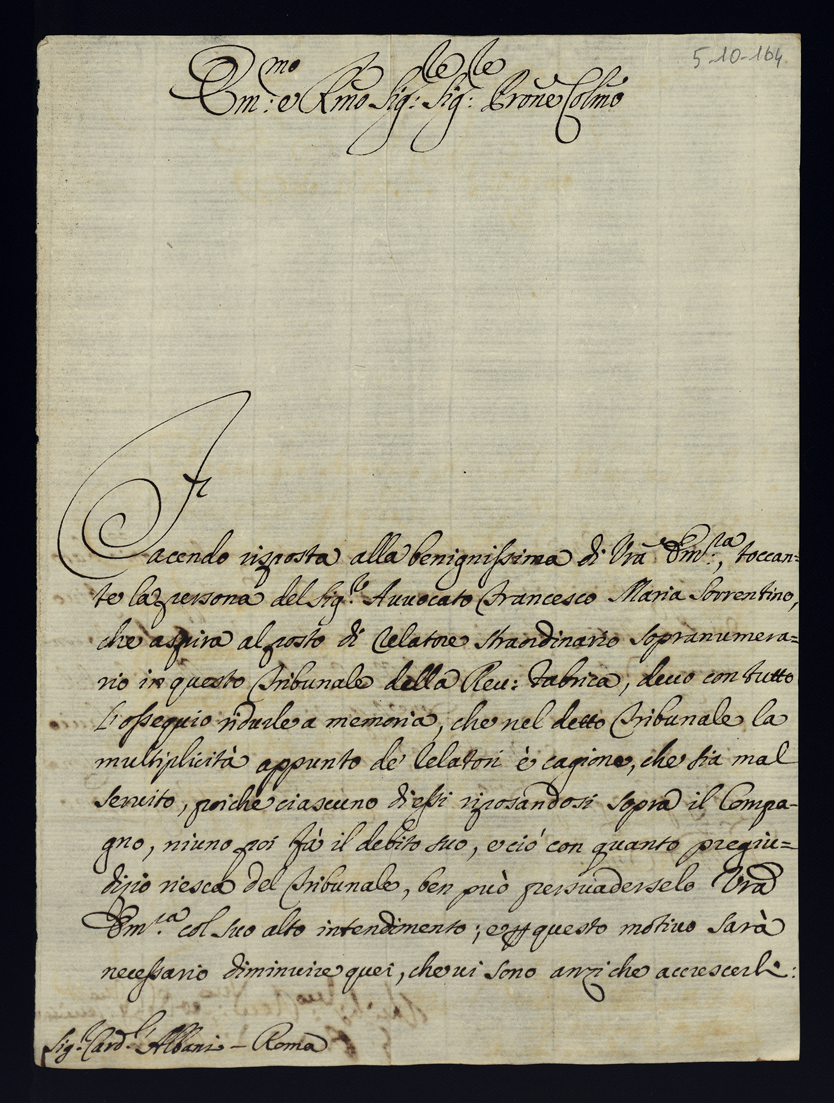 5-10-164
Em:mo e Rmo Sig:re Sig:re Prone Colmo
Facendo risposta alla benignissima di Vra Em:za, toccan=
te la persona del Sig:re Avvocato Francesco Maria Sorrentino,
che aspira al posto di Relatore straordinario sopranumera=
rio in questo Tribunale della Rev: Fabrica, devo con tutto
l'ossequio ridurle a memoria, che nel detto Tribunale la
multiplicità appunto de' Relatori è cagione, che sia mal
servito, poiche ciascuno di essi riposandosi sopra il Compa-
gno, niuno poi fà il debito suo, e ciò con quanto pregiu=
dizio riesca del Tribunale, ben può persuaderselo Vra
Em:za col suo alto intendimento; e questo motivo sarà
necessario diminuire quei, che vi sono anzi che accrescerli:
Sig:r Card:l Albani - Roma